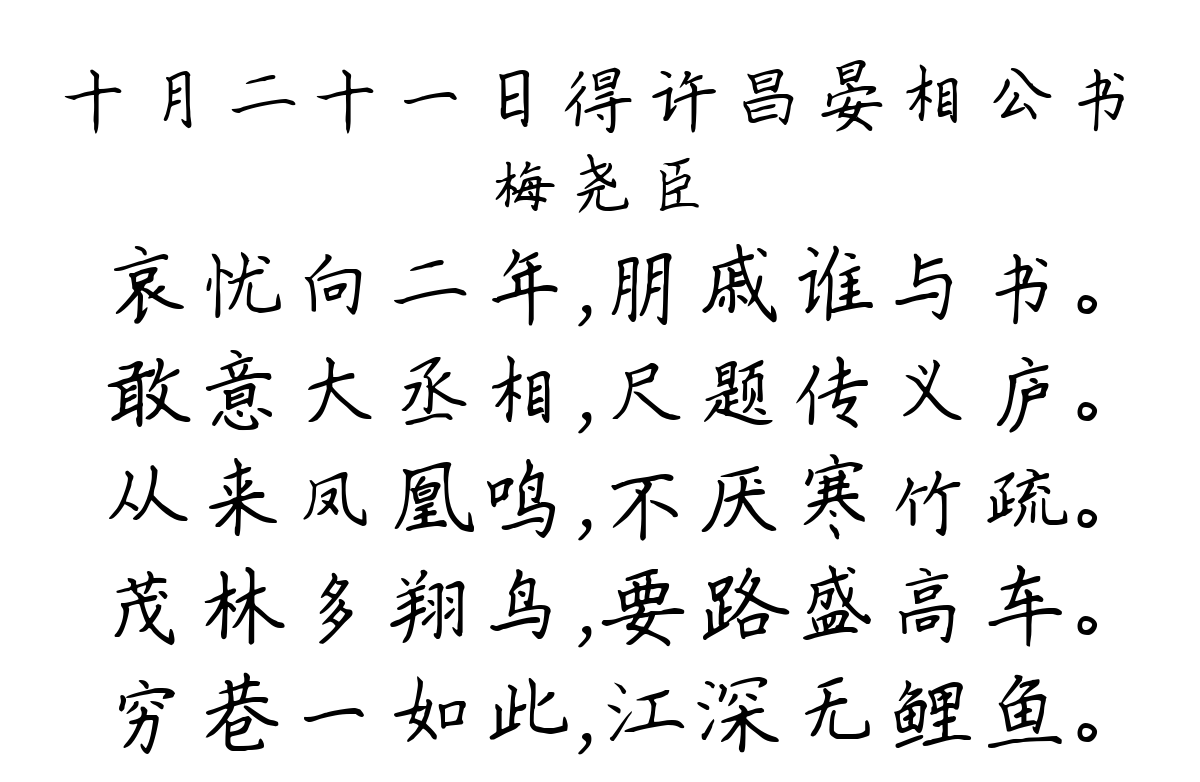 十月二十一日得许昌晏相公书
梅尧臣
哀忧向二年,朋戚谁与书。
敢意大丞相,尺题传义庐。
从来凤凰鸣,不厌寒竹疏。
茂林多翔鸟,要路盛高车。
穷巷一如此,江深无鲤鱼。